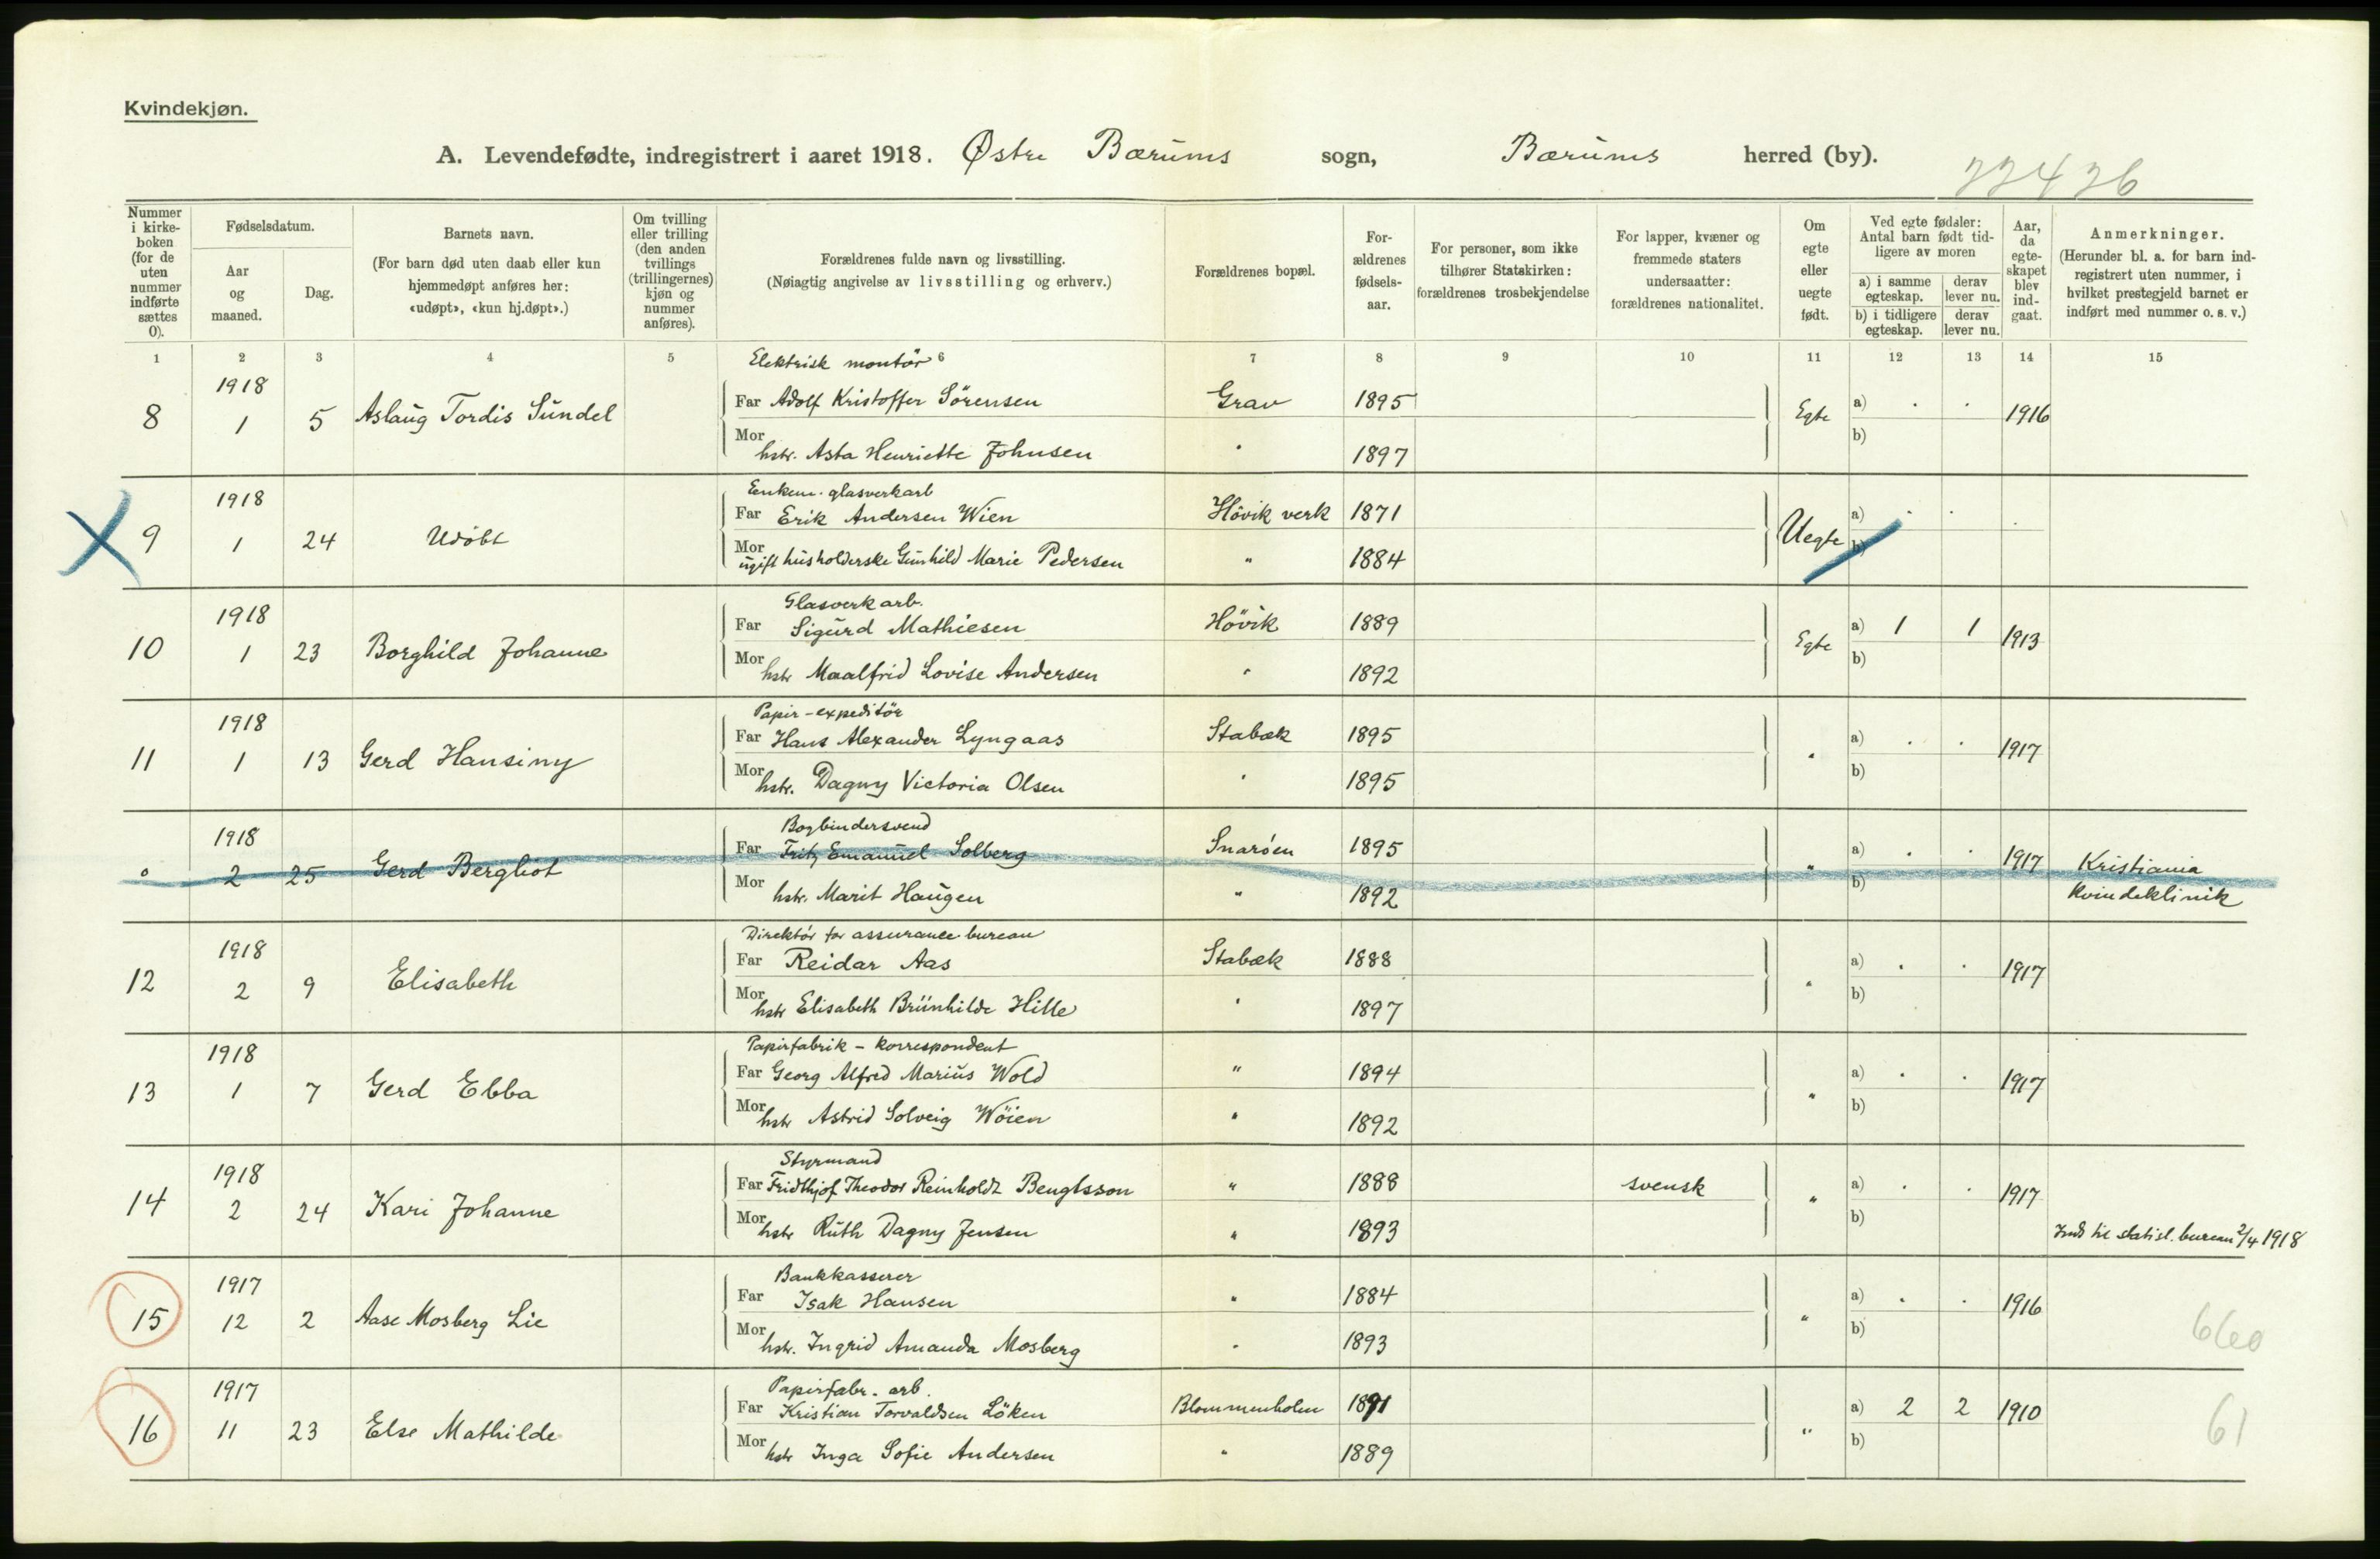 Kvindekjøn.
A. Levendefødte, indregistrert i aaret 1918. Østre Bærums sogn, Bærums herred (by).
22426
Nummer i kirkeboken (for de uten nummer indførte sættes 0).
Fødselsdatum.
Aar og maaned.
Dag.
Barnets navn.
(For barn død uten daab eller kun hjemmedøpt anføres her: «udøpt», «kun hj.døpt».)
Om tvilling eller trilling (den anden tvillings (trillingernes) kjøn og nummer anføres).
Forældrenes fulde navn og livsstilling.
(Nøiagtig angivelse av livsstilling og erhverv.)
Forældrenes bopæl.
Forældrenes fødselsaar.
For personer, som ikke tilhører Statskirken: forældrenes trosbekjendelse
For lapper, kvæner og fremmede staters undersaatter: forældrenes nationalitet.
Om egte eller uegte født.
Ved egte fødsler: Antal barn født tidligere av moren
a) i samme egteskap. derav lever nu.
b) i tidligere egteskap. derav lever nu.
Aar, da egteskapet blev indgaat.
Anmerkninger.
(Herunder bl. a. for barn indregistrert uten nummer, i hvilket prestegjeld barnet er indført med nummer o. s. v.)
1 2 3 4 5 6 7 8 9 10 11 12 13 14 15
Elektrisk montör
8 1918 1 5 Aslaug Tordis Sundel Far Adolf Kristoffer Sörensen Grav 1895 Egte a) . . 1916
Mor hstr. Asta Henriette Johnsen " 1897 b)
Enkem. glasverkarb
9 1918 1 24 Udöbt Far Erik Andersen Wien Hövik verk 1871 Uegte a) . . .
Mor ugift husholderske Gunhild Marie Pedersen " 1884 b)
Glasverk arb.
10 1918 1 23 Borghild Johanne Far Sigurd Mathiesen Hövik 1889 Egte a) 1 1 1913
Mor hstr Maalfrid Lovise Andersen " 1892 b)
Papir-expeditör
11 1918 1 13 Gerd Hansiny Far Hans Alexander Lyngaas Stabæk 1895 " a) . . 1917
Mor hstr. Dagny Victoria Olsen " 1895 b)
Bogbindersvend
0 1918 2 25 Gerd Bergliot Far Fritz Emanuel Solberg Snaröen 1895 " a) . . 1917 Kristiania
Mor hstr. Marit Haugen " 1892 b) kvindeklinik
Direktör for assurance bureau
12 1918 2 9 Elisabeth Far Reidar Aas Stabæk 1888 " a) . . 1917
Mor hstr Elisabeth Brünhilde Hille " 1897 b)
Papirfabrik - korrespondent
13 1918 1 7 Gerd Ebba Far Georg Alfred Marius Wold " 1894 " a) . . 1917
Mor hstr Astrid Solveig Wöien " 1892 b)
Styrmand
14 1918 2 24 Kari Johanne Far Fridthjof Theodor Reinholdt Bengtsson " 1888 svensk " a) . . 1917
Mor hstr Ruth Dagny Jensen " 1893 b) Inds til statist. bureau 2/4 1918
Bankkasserer
15 1917 12 2 Aase Mosberg Lie Far Isak Hansen " 1884 " a) . . 1916
Mor hstr. Ingrid Amanda Mosberg " 1893 b) 660
Papirfabr. arb.
16 1917 11 23 Else Mathilde Far Kristian Torvaldsen Löken Blommenholm 1891 " a) 2 2 1910
Mor hstr Inga Sofie Andersen " 1889 b) 61